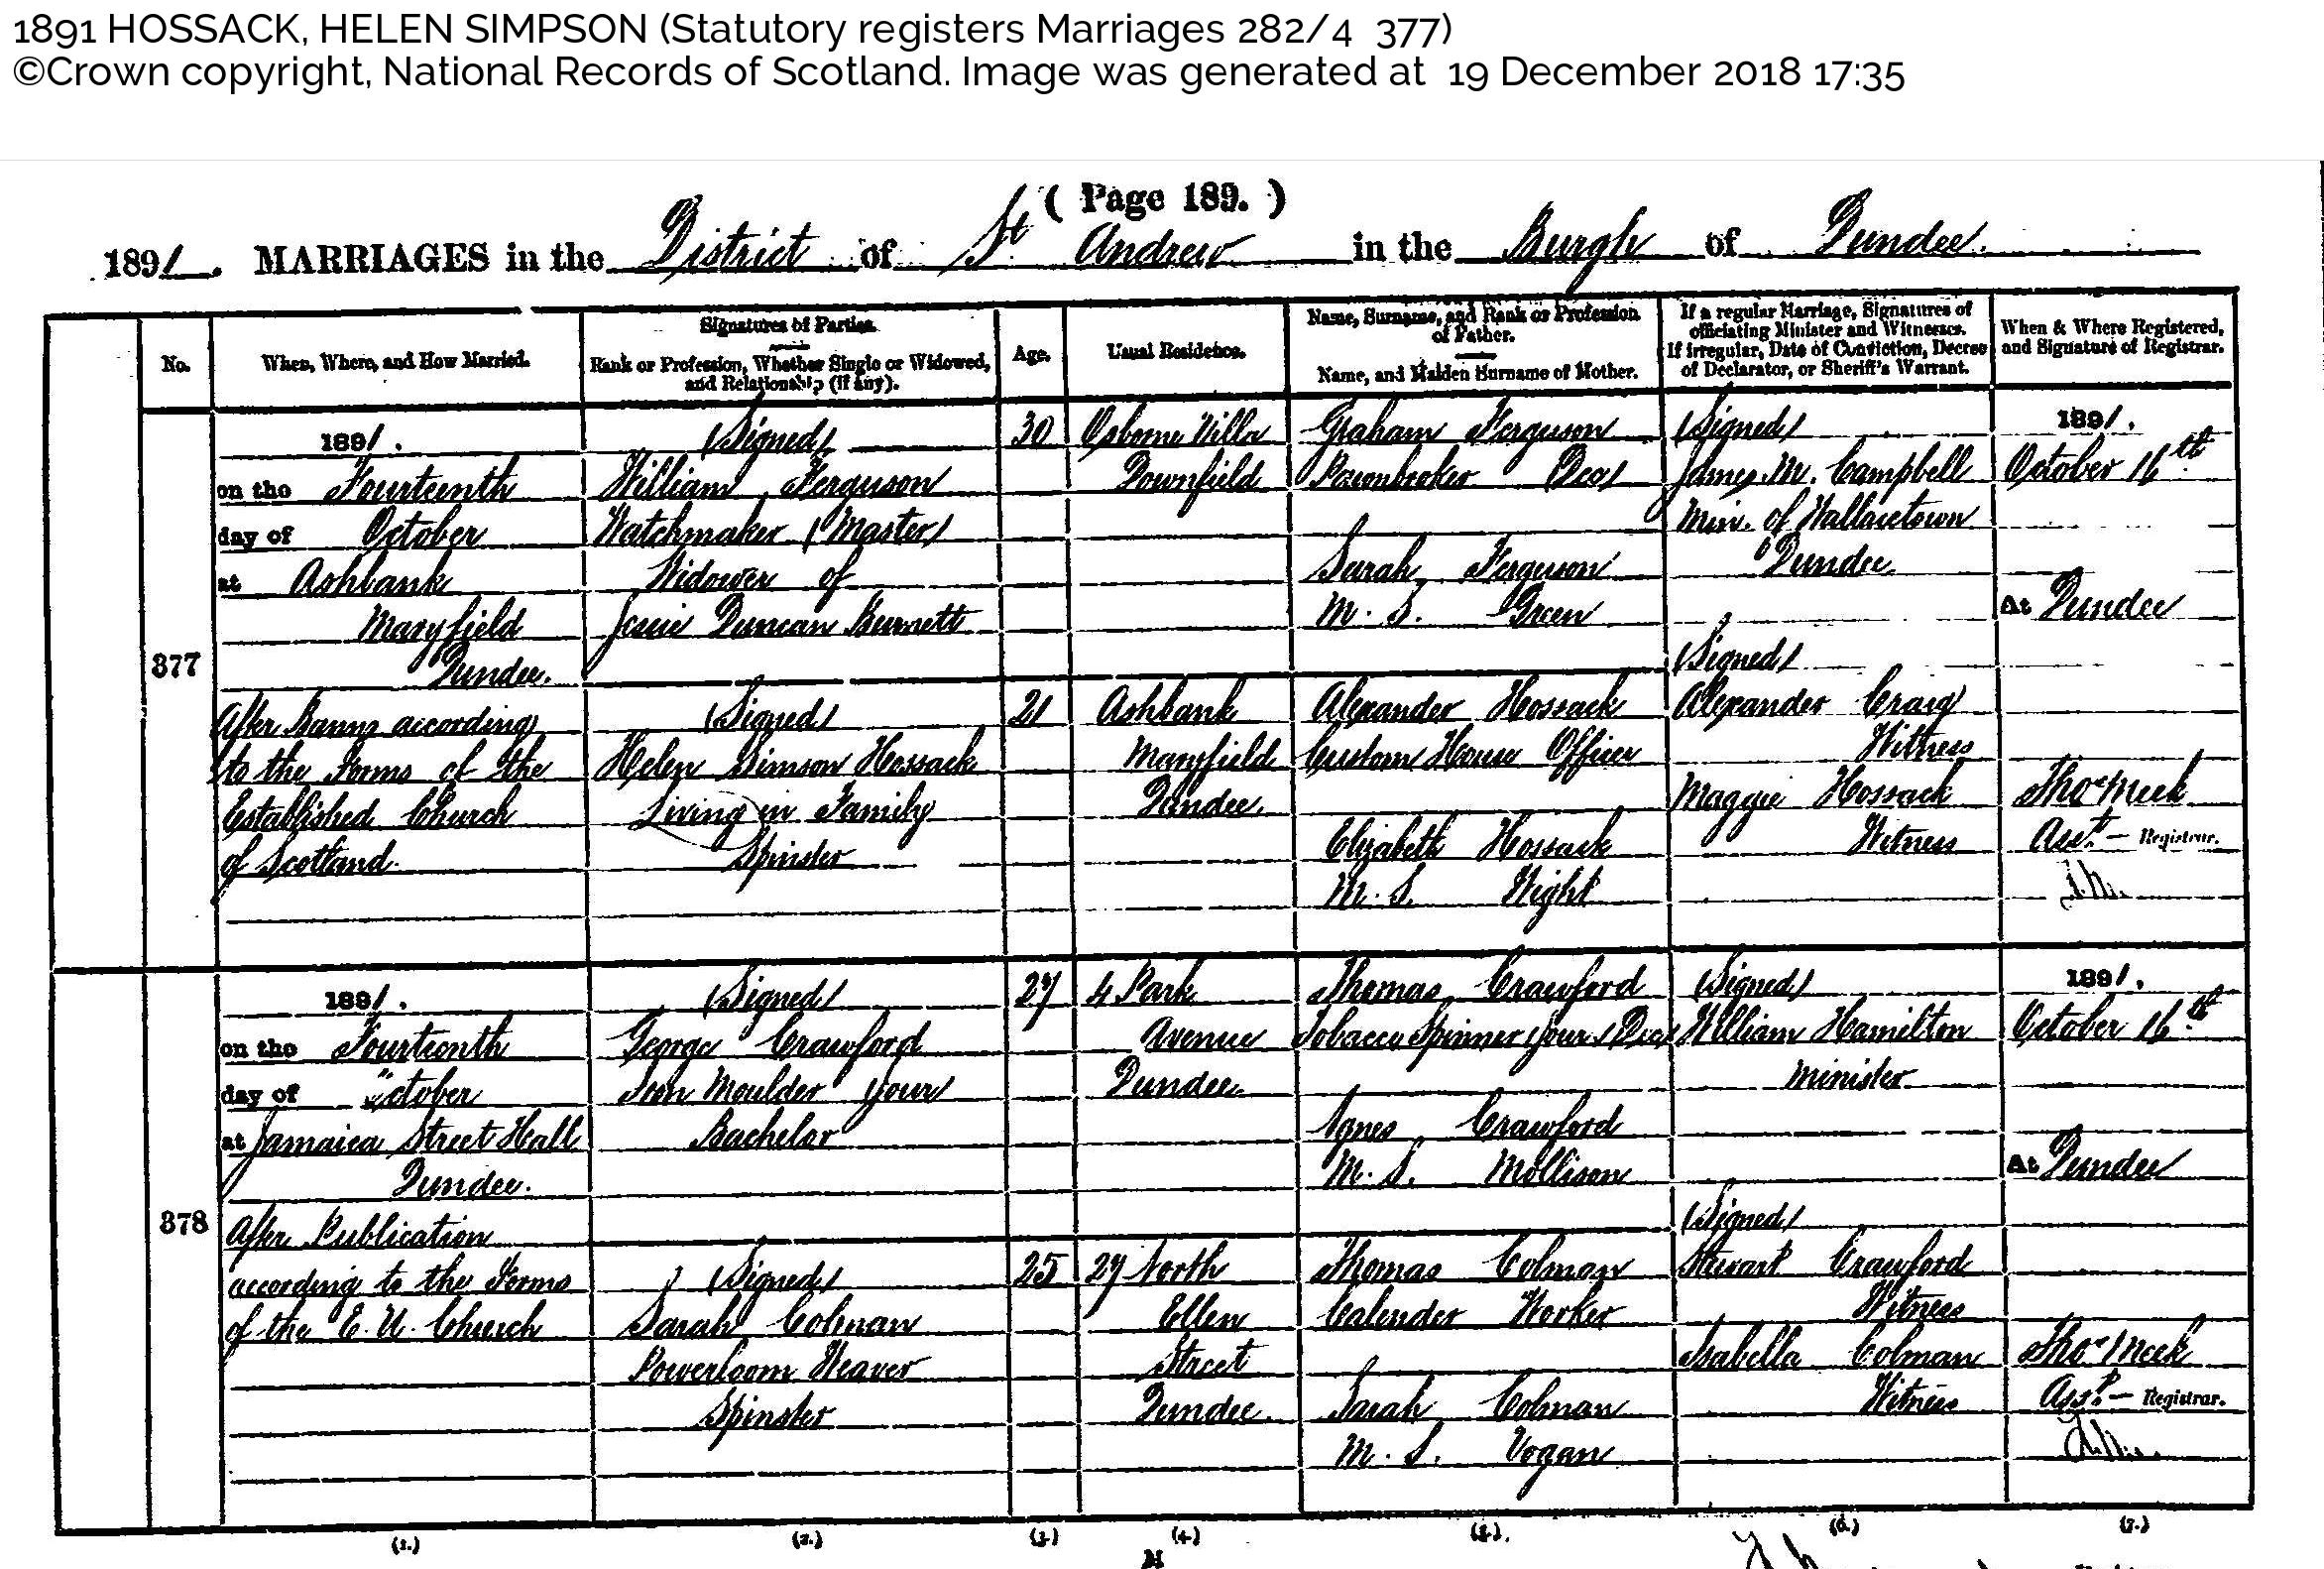 1891 HOSSACK, HELEN SIMPSON (Statutory registers Marriages 282/4 377)
©Crown copyright, National Records of Scotland. Image was generated at 19 December 2018 17:35
( Page 189. )
1891. MARRIAGES in the District of St Andrew in the Burgh of Dundee.
No.
When, Where, and How Married.
Signatures of Parties.
Rank or Profession, Whether Single or Widowed,
and Relationship (if any).
Age.
Usual Residence.
Name, Surname, and Rank or Profession
of Father.
Name, and Maiden Surname of Mother.
If a regular Marriage, Signatures of
officiating Minister and Witnesses.
If irregular, Date of Conviction, Decree
of Declarator, or Sheriff's Warrant.
When & Where Registered,
and Signature of Registrar.
377
1891.
on the Fourteenth
day of October
at Ashbank
Maryfield
Dundee.
After Banns according
to the Forms of the
Established Church
of Scotland.
(Signed)
William Ferguson
Watchmaker (Master)
Widower of
Jessie Duncan Burnett
(Signed)
Helen Simson Hossack
Living in Family
Spinster
30
21
Osborne Villa
Downfield
Ashbank
Maryfield
Dundee.
Graham Ferguson
Pawnbroker (Dec)
Sarah Ferguson
M.S. Green
Alexander Hossack
Custom House Officer
Elizabeth Hossack
M.S. Wight
(Signed)
James M. Campbell
Min. of Wallacetown
Dundee
(Signed)
Alexander Craig
Witness
Maggie Hossack
Witness
1891.
October 16th
At Dundee
Thos Meek
Asst.— Registrar.
378
1891.
on the Fourteenth
day of October
at Jamaica Street Hall
Dundee.
After Publication
according to the Forms
of the E. U. Church
(Signed)
George Crawford
Iron Moulder Jour
Bachelor
(Signed)
Sarah Colman
Powerloom Weaver
Spinster
27
25
4 Park
Avenue
Dundee.
27 North
Ellen
Street
Dundee.
Thomas Crawford
Tobacco Spinner Jour (Dec)
Agnes Crawford
M.S. Mollison
Thomas Colman
Calender Worker
Sarah Colman
M.S. Vogan
(Signed)
William Hamilton
Minister
(Signed)
Stewart Crawford
Witness
Isabella Colman
Witness
1891.
October 16th
At Dundee
Thos Meek
Asst.— Registrar.
(1.)
(2.)
(3.)
(4.)
(5.)
(6.)
(7.)
M